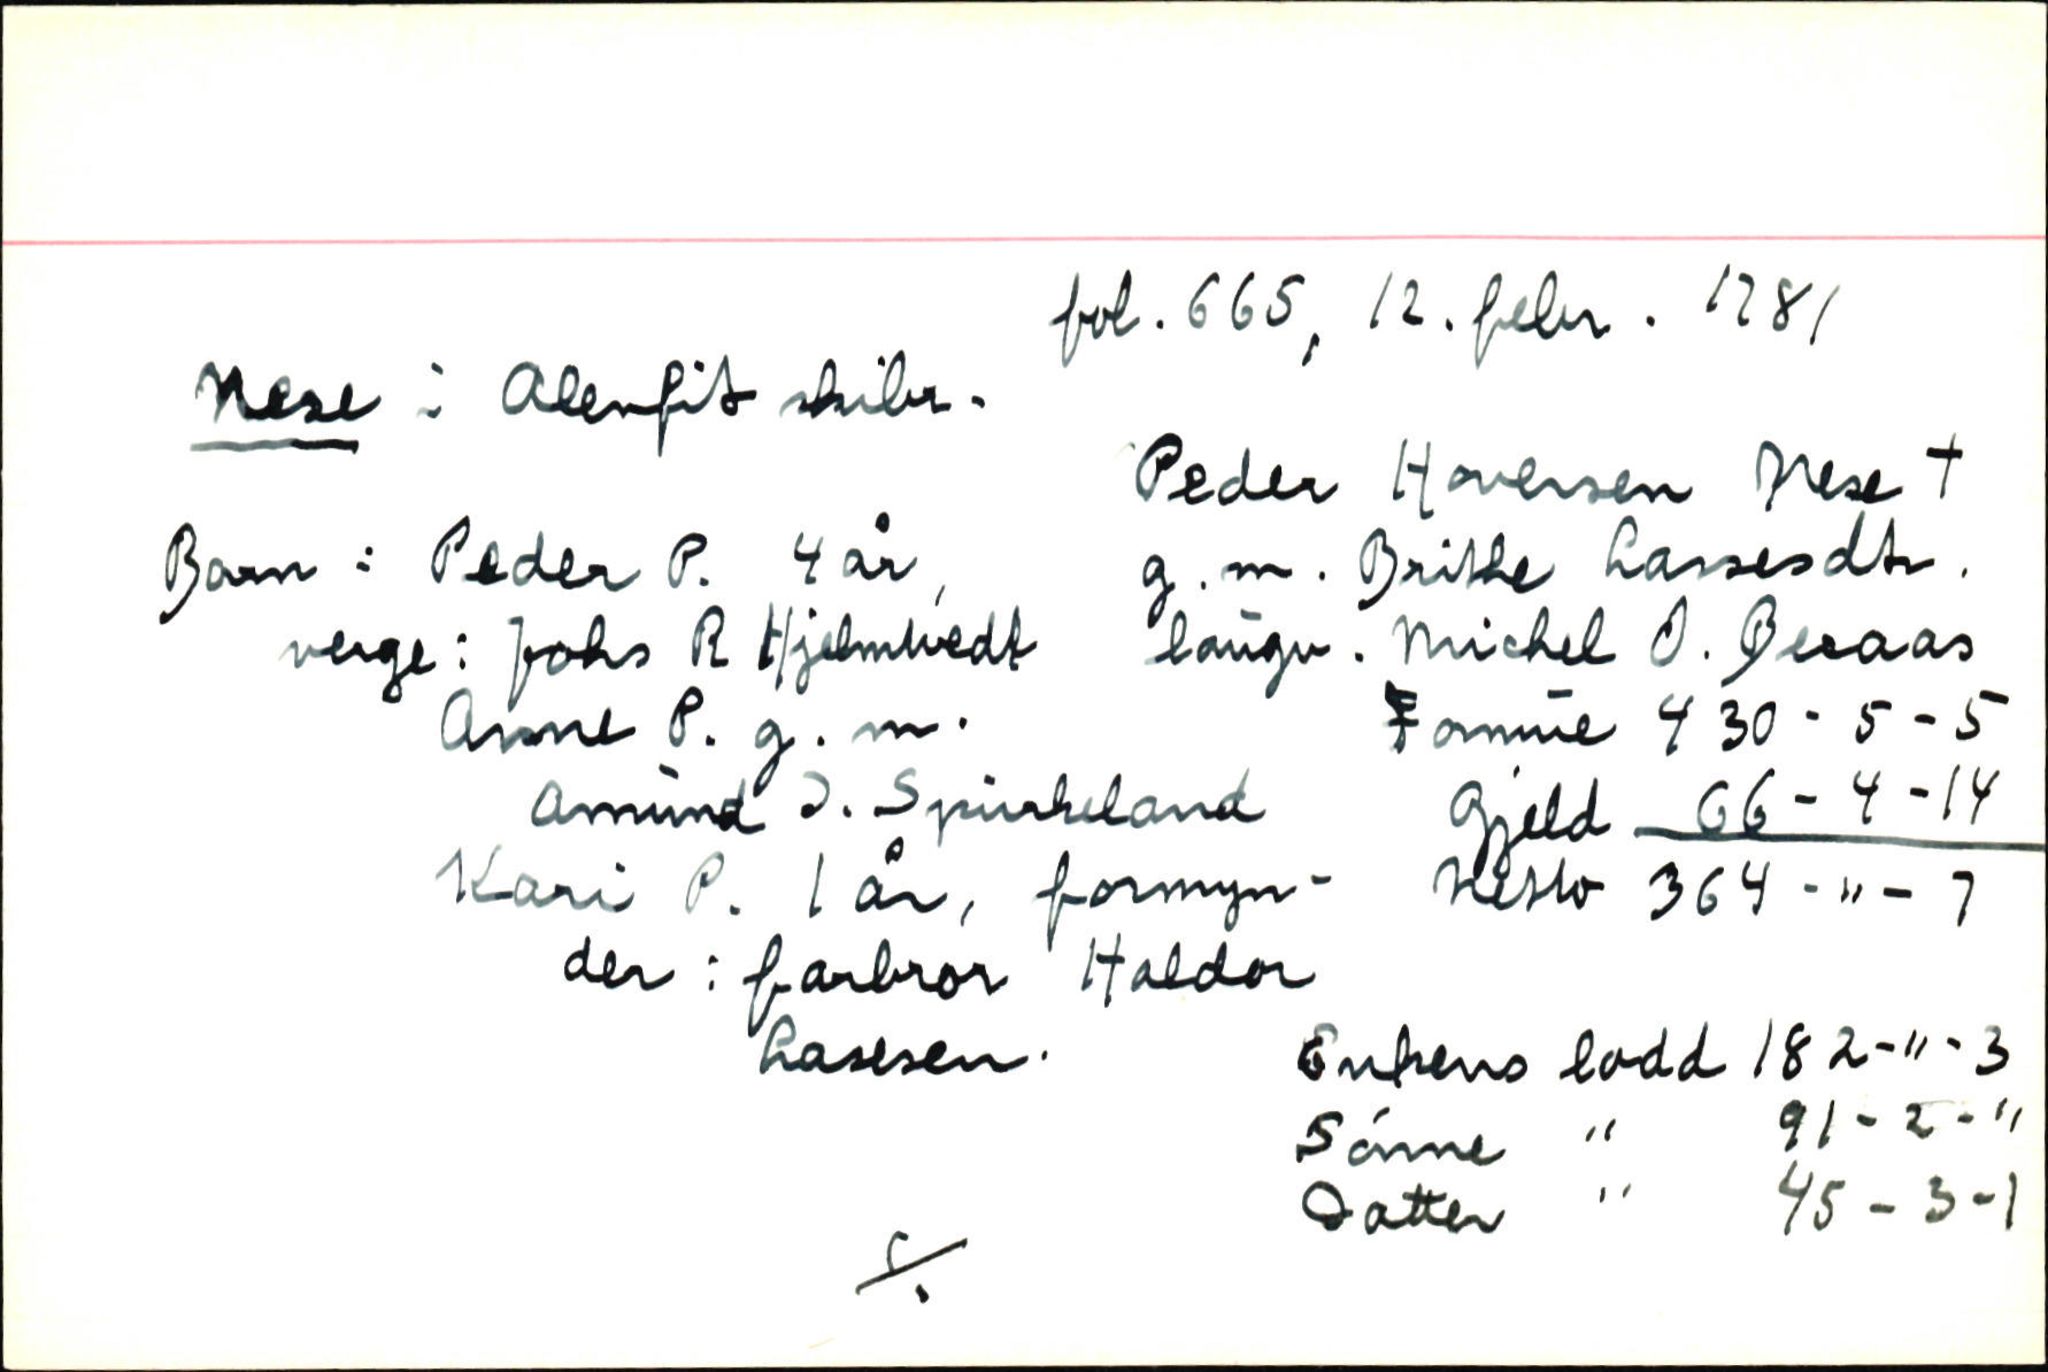 fol. 665, 12. febr. 1781
Nese : Alenfit skibr.
Peder Haversen Nese †
Barn : Peder P. 4 år, g. m. Brithe Lassesdtr.
verge : Johs R Hjelmtvedt laugv. Michel O. Besaas
Anne P. g. m. Formue 430 - 5 - 5
Amund J. Spurkeland Gjeld 66 - 4 - 14
Kari P. 1 år, formyn- Netto 364 - " - 7
der : farbror Haldor
Lassesen.
Enkens lodd 182 - " - 3
Sønne " 91 - 2 - "
Datter " 45 - 3 - 1